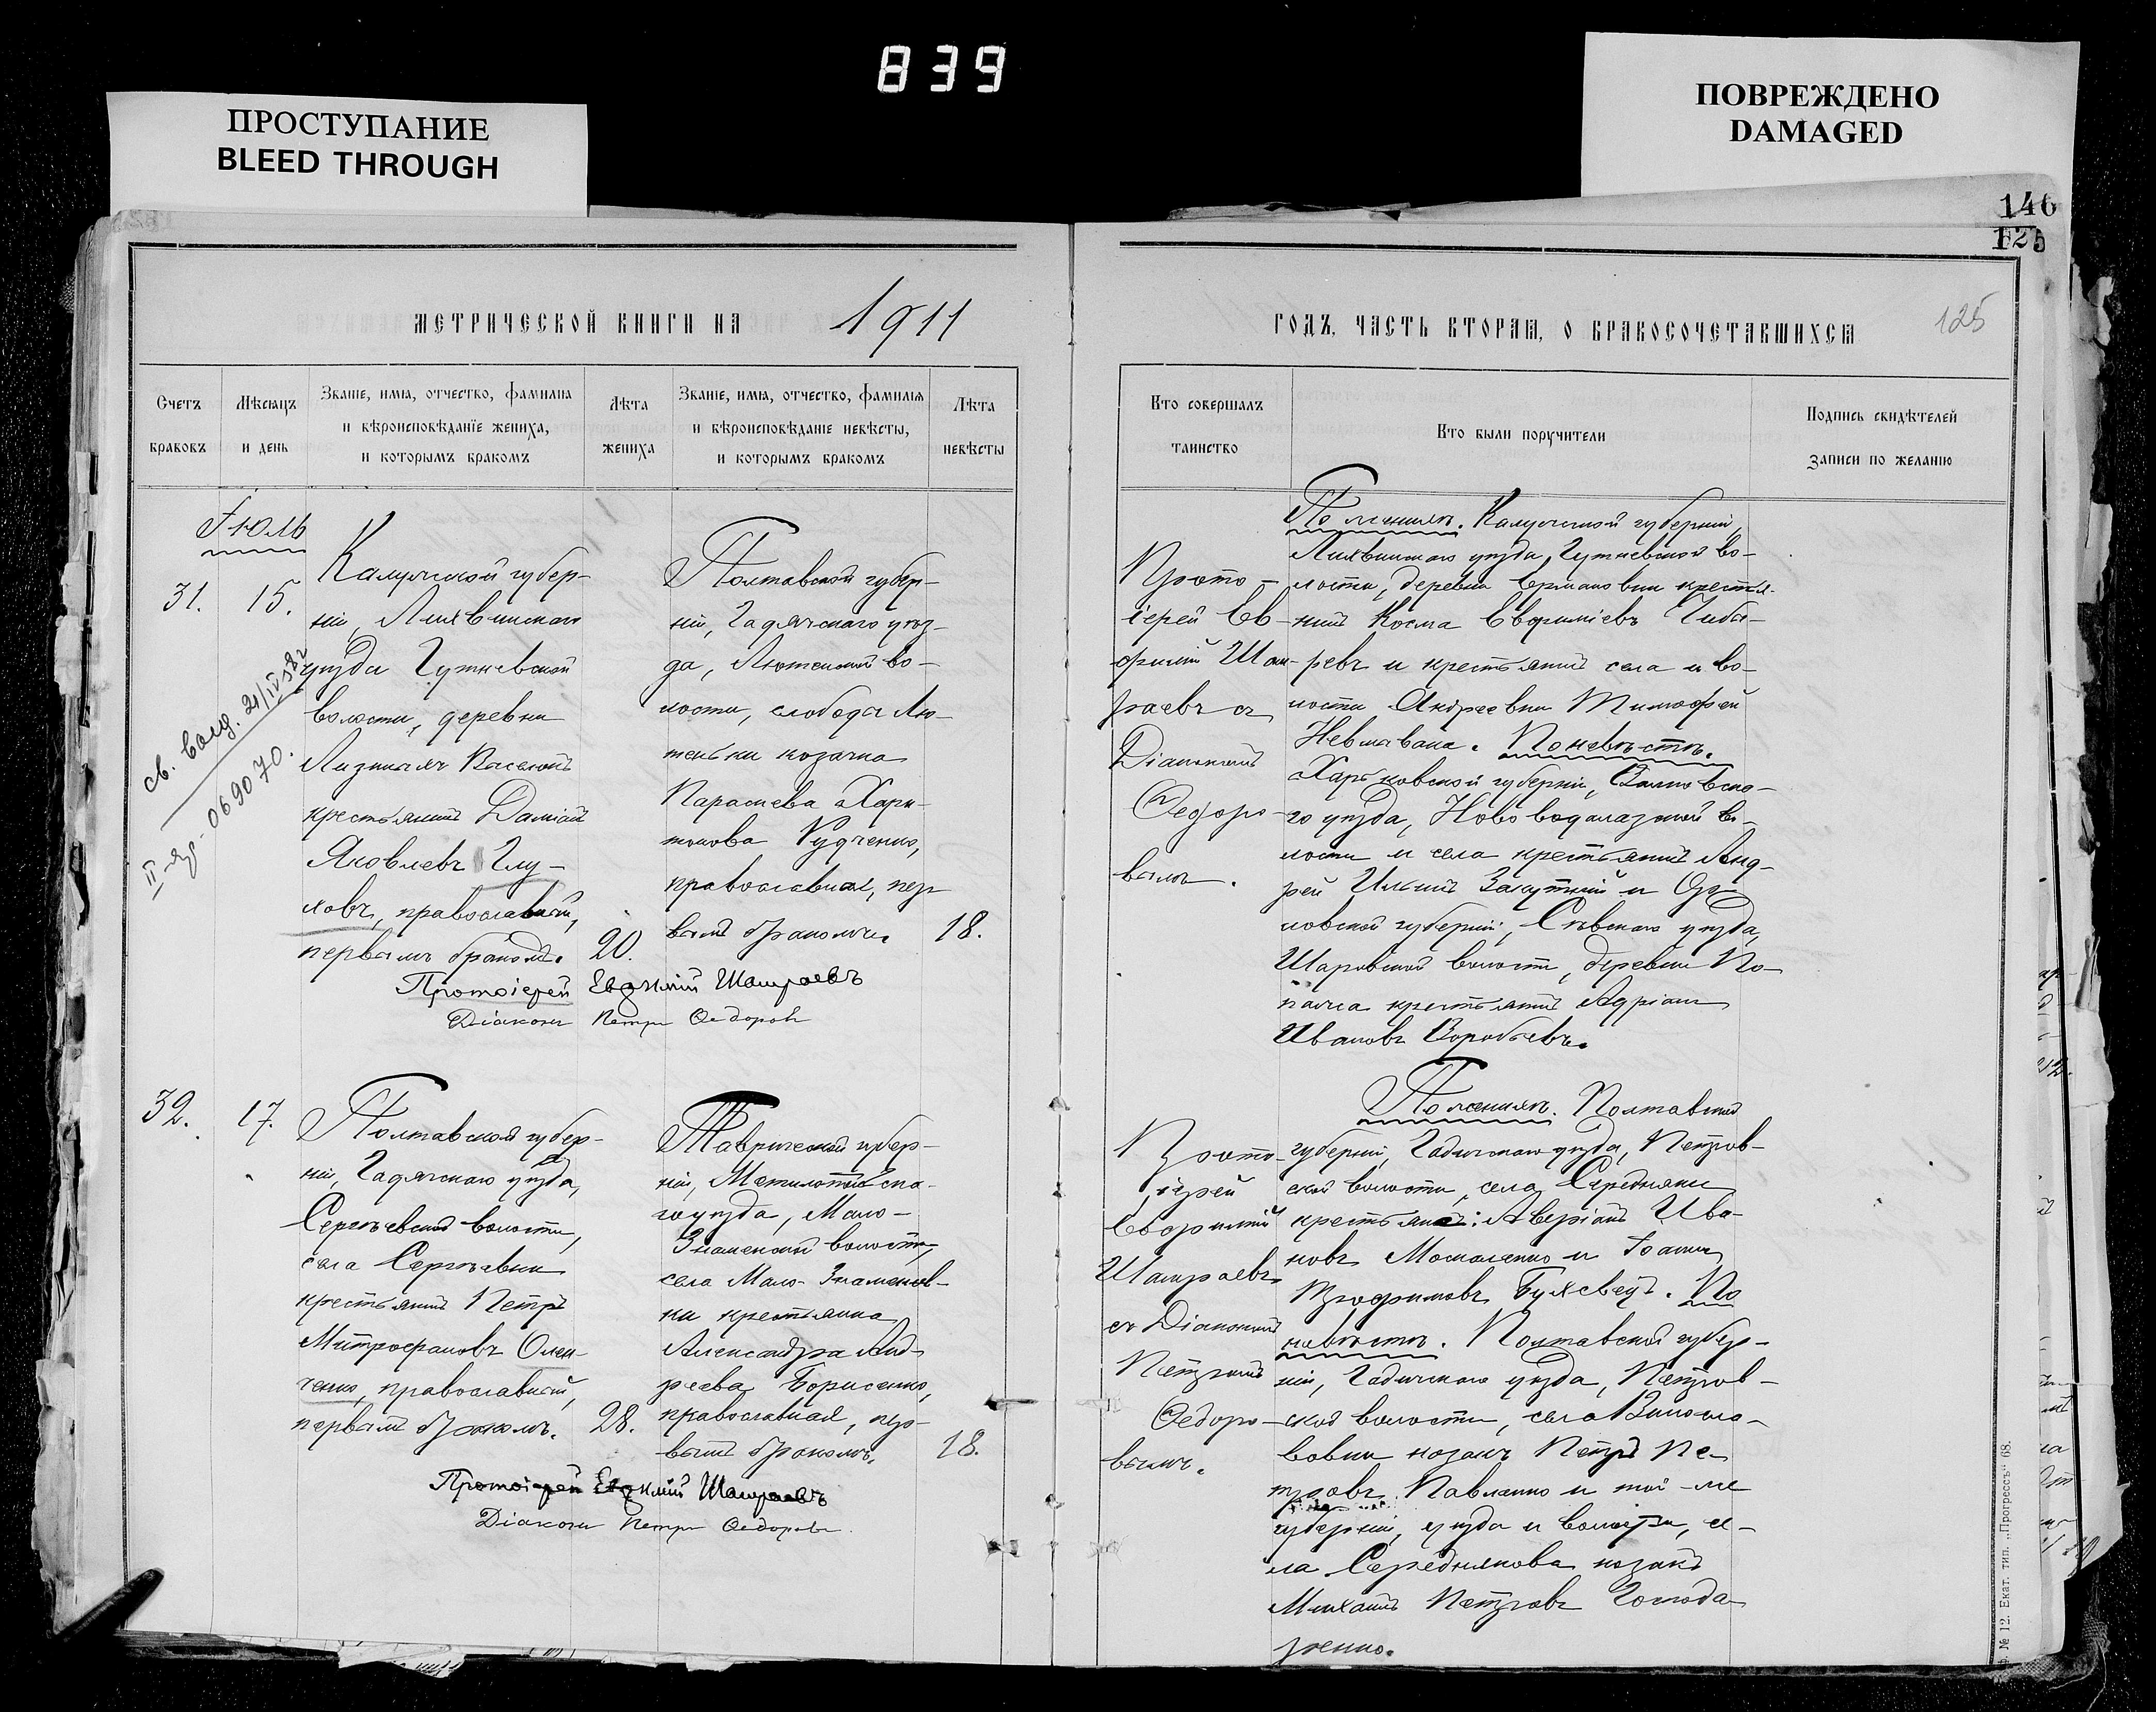 839
ПРОСТУПАНИЕ
BLEED THROUGH
ПОВРЕЖДЕНО
DAMAGED
146
125
МЕТРИЧЕСКОЙ КНИГИ НА 1911
ГОДЪ, ЧАСТЬ ВТОРАЯ, О БРАКОСОЧЕТАВШИХСЯ
125
Счетъ
браковъ
Мѣсяцъ
и день
Званіе, имя, отчество, фамилія
и вѣроисповѣданіе жениха,
и которымъ бракомъ
Лѣта
жениха
Званіе, имя, отчество, фамилія
и вѣроисповѣданіе невѣсты,
и которымъ бракомъ
Лѣта
невѣсты
Кто совершалъ
таинство
Кто были поручители
Подпись свидѣтелей
записи по желанію
Іюль
31.
15.
св. выд. 21/IV 58 г
II-яр. 069070.
Калужской губер-
ніи, Лихвинскаго
уѣзда Гутневской
волости, деревни
крестьянинъ Даміанъ
Яковлевъ Глу-
ховъ, православный,
первымъ бракомъ.
20.
Полтавской губер-
ніи, Гадячскаго уѣз-
да, Лютенской во-
лости, слободы Лю-
теньки козачка
Параскева Хари-
тонова Рудченко,
православная, пер
вымъ бракомъ.
18.
Протоіерей Евѳимій Шамраевъ
Діаконъ Петръ Ѳедоровъ
Прото-
іерей Ев-
фимій Шам-
раевъ съ
Діакономъ
Ѳедоро-
вымъ.
По женихѣ. Калужской губерніи,
Лихвинскаго уѣзда, Гутневской во-
лости, деревни крестья-
нинъ Косма Евфиміевъ Чиба-
ревъ и крестьянинъ села и во-
лости Андреевки Тимофей
По невѣстѣ.
Харьковской губерніи, Валковска-
го уѣзда, Ново Водолажской во-
лости и села крестьянинъ Анд-
рей Ильинъ и Ор-
ловской губерніи, Сѣвскаго уѣзда,
волости, деревни
крестьянинъ Адріанъ
Ивановъ Воробьевъ.
32.
17.
Полтавской губер-
ніи, Гадячскаго уѣзда,
Сергѣевской волости,
села Сергѣевки
крестьянинъ Петръ
Митрофановъ Олен-
ченко, православный,
первымъ бракомъ.
28.
Таврической губер-
ніи, Мелитопольска-
го уѣзда, Мало-
Знаменской волости,
села Мало-Знаменов-
ки крестьянка
Александра Анд-
реева Борисенко,
православная, пер-
вымъ бракомъ.
18.
Протоіерей Евѳимій Шамраевъ
Діаконъ Петръ Ѳедоровъ
Прото-
іерей
Евфимій
Шамраевъ
съ Діакономъ
Петромъ
Ѳедоро-
вымъ.
По женихѣ. Полтавской
губерніи, Гадячскаго уѣзда, Петров-
ской волости, села Середняки
крестьяне: Аверіанъ Ива-
новъ Москаленко и Іоаннъ
Трофимовъ. По
невѣстѣ. Полтавской губер-
ніи, Гадячскаго уѣзда, Петров-
ской волости, села
козакъ Петръ Пе-
тровъ Павленко и той-же
губерніи, уѣзда и волости, се-
ла Середнякова козакъ
Михаилъ Петровъ Господа-
ренко.
ф. № 12. Екат. тип. „Прогрессъ“ 68.